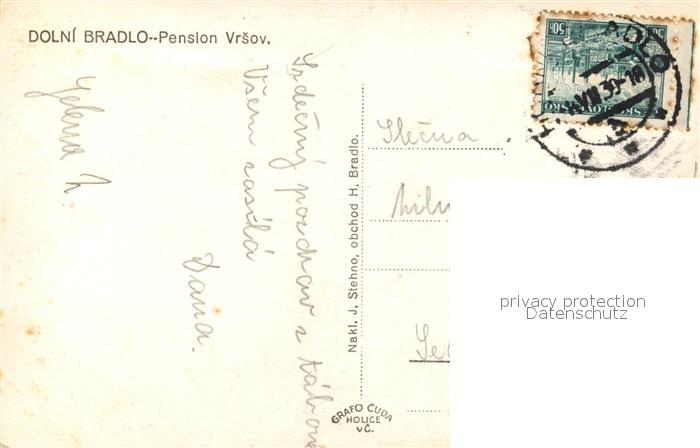 DOLNÍ BRADLO--Pension Vršov.
Srdečný pozdrav z tábora
Všem zasílá
Dana.
Jelena
Nakl. J. Stehno, obchod H. Bradlo.
GRAFO ČUDA
HOLICE
V.Č.
Slečna
50h
ČESKOSLOVENSKO
VIII 39-18
privacy protection
Datenschutz